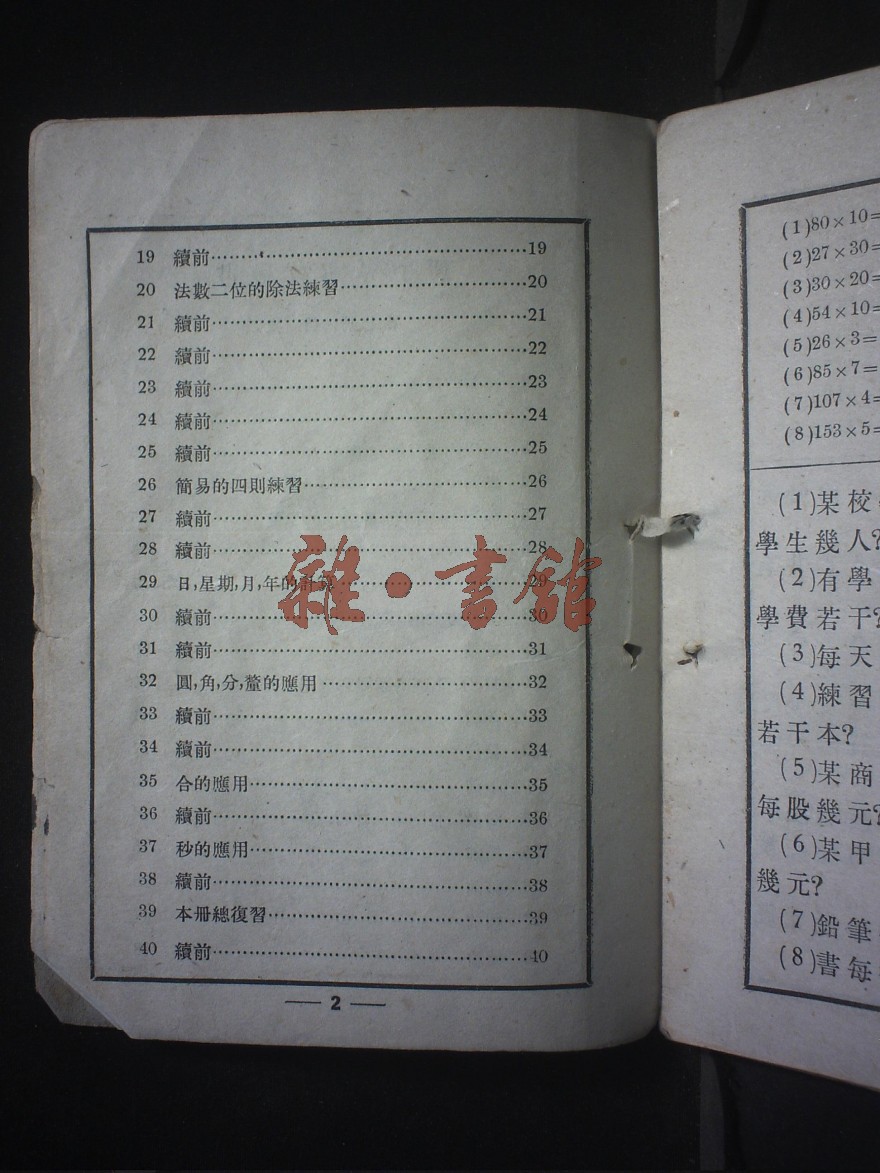 19 續前 19
20 法數二位的除法練習 20
21 續前 21
22 續前 22
23 續前 23
24 續前 24
25 續前 25
26 簡易的四則練習 26
27 續前 27
28 續前 28
29 日,星期,月,年的計算 29
30 續前 30
31 續前 31
32 圓,角,分,釐的應用 32
33 續前 33
34 續前 34
35 合的應用 35
36 續前 36
37 秒的應用 37
38 續前 38
39 本冊總復習 39
40 續前 40
— 2 —
雜·書館
(1)80×10=
(2)27×30=
(3)30×20=
(4)54×10=
(5)26×3=
(6)85×7=
(7)107×4=
(8)153×5=
(1)某校
學生幾人?
(2)有學
學費若干?
(3)每天
(4)練習
若干本?
(5)某商
每股幾元?
(6)某甲
幾元?
(7)鉛筆
(8)書每